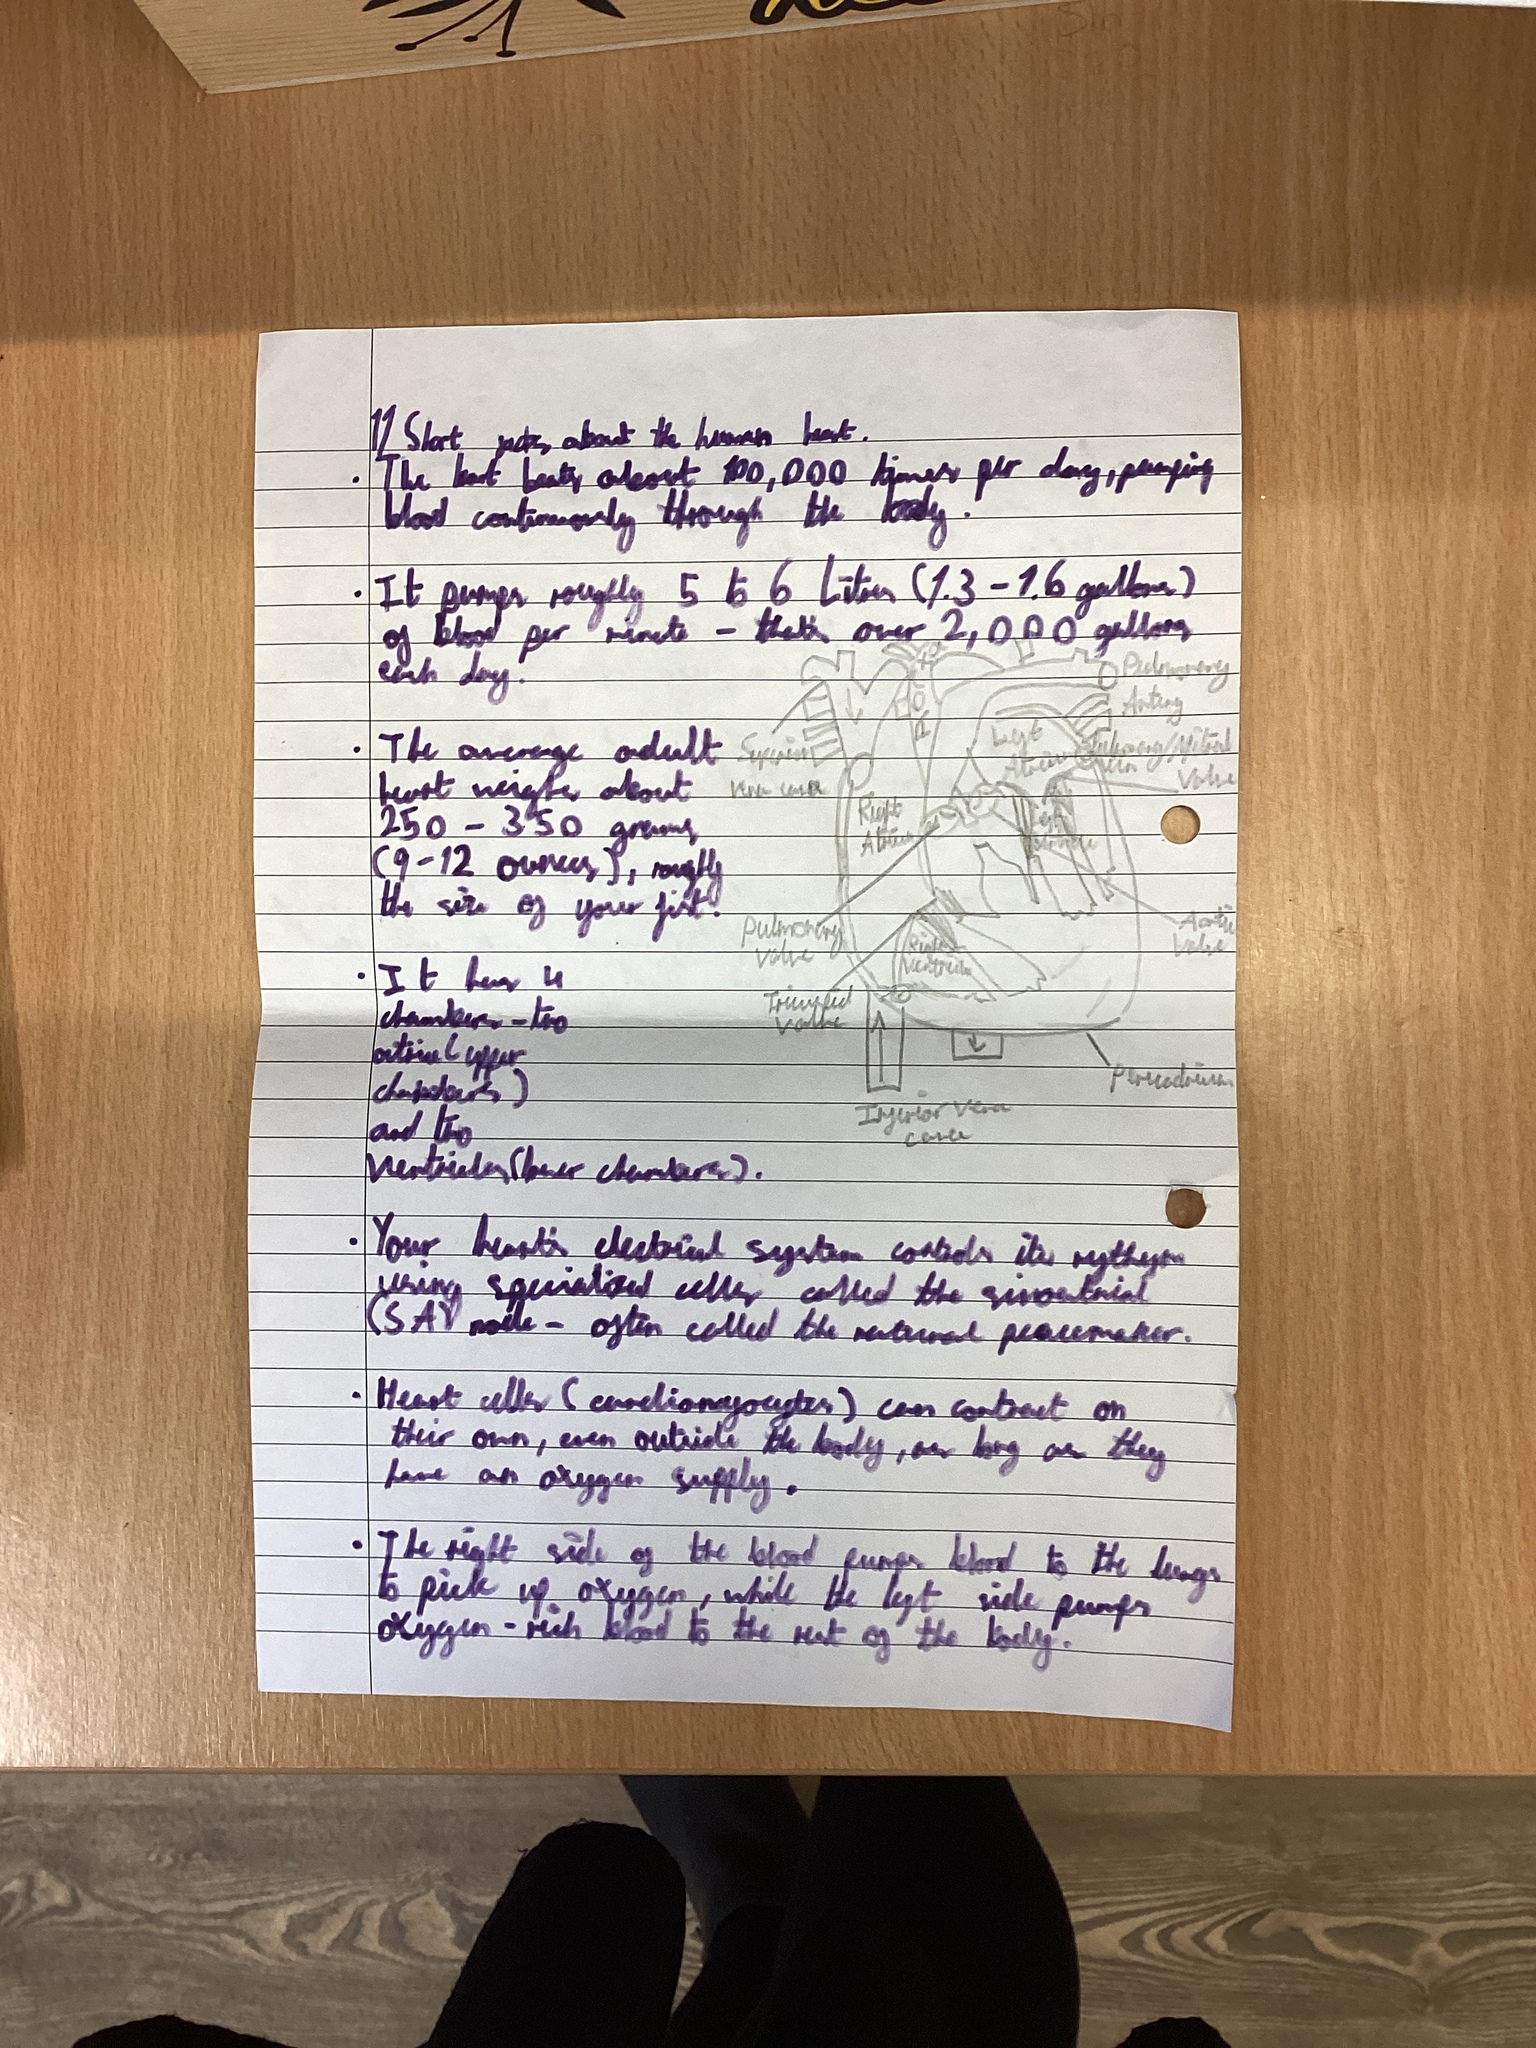 12 Short facts about the human heart.
. The heart beats about 100,000 times per day, pumping
blood continuously through the body.
. It pumps roughly 5 to 6 Litres (1.3 - 1.6 gallons)
of blood per minute - that's over 2,000 gallons
each day.
. The average adult
heart weighs about
250 - 350 grams
(9-12 ounces), roughly
the size of your fist.
. It has 4
chambers - two
atria (upper
chambers)
and two
ventricles (lower chambers).
. Your heart's electrical system controls its rythym
using specialized cells called the sinoatrial
(SA) node - often called the natural peacemaker.
. Heart cells (cardiomyocytes) can contract on
their own, even outside the body, as long as they
have an oxygen supply.
. The right side of the blood pumps blood to the lungs
to pick up oxygen, while the left side pumps
oxygen - rich blood to the rest of the body.
Aorta
Pulmonary
Artery
Superior
vena cava
Left
Atrium
Pulmonary
Mitral
Valve
Right
Atrium
Left
Ventricle
Pulmonary
Valve
Aortic
Valve
Right
Ventricle
Tricuspid
Valve
Pericadrium
Inferior vena
cava